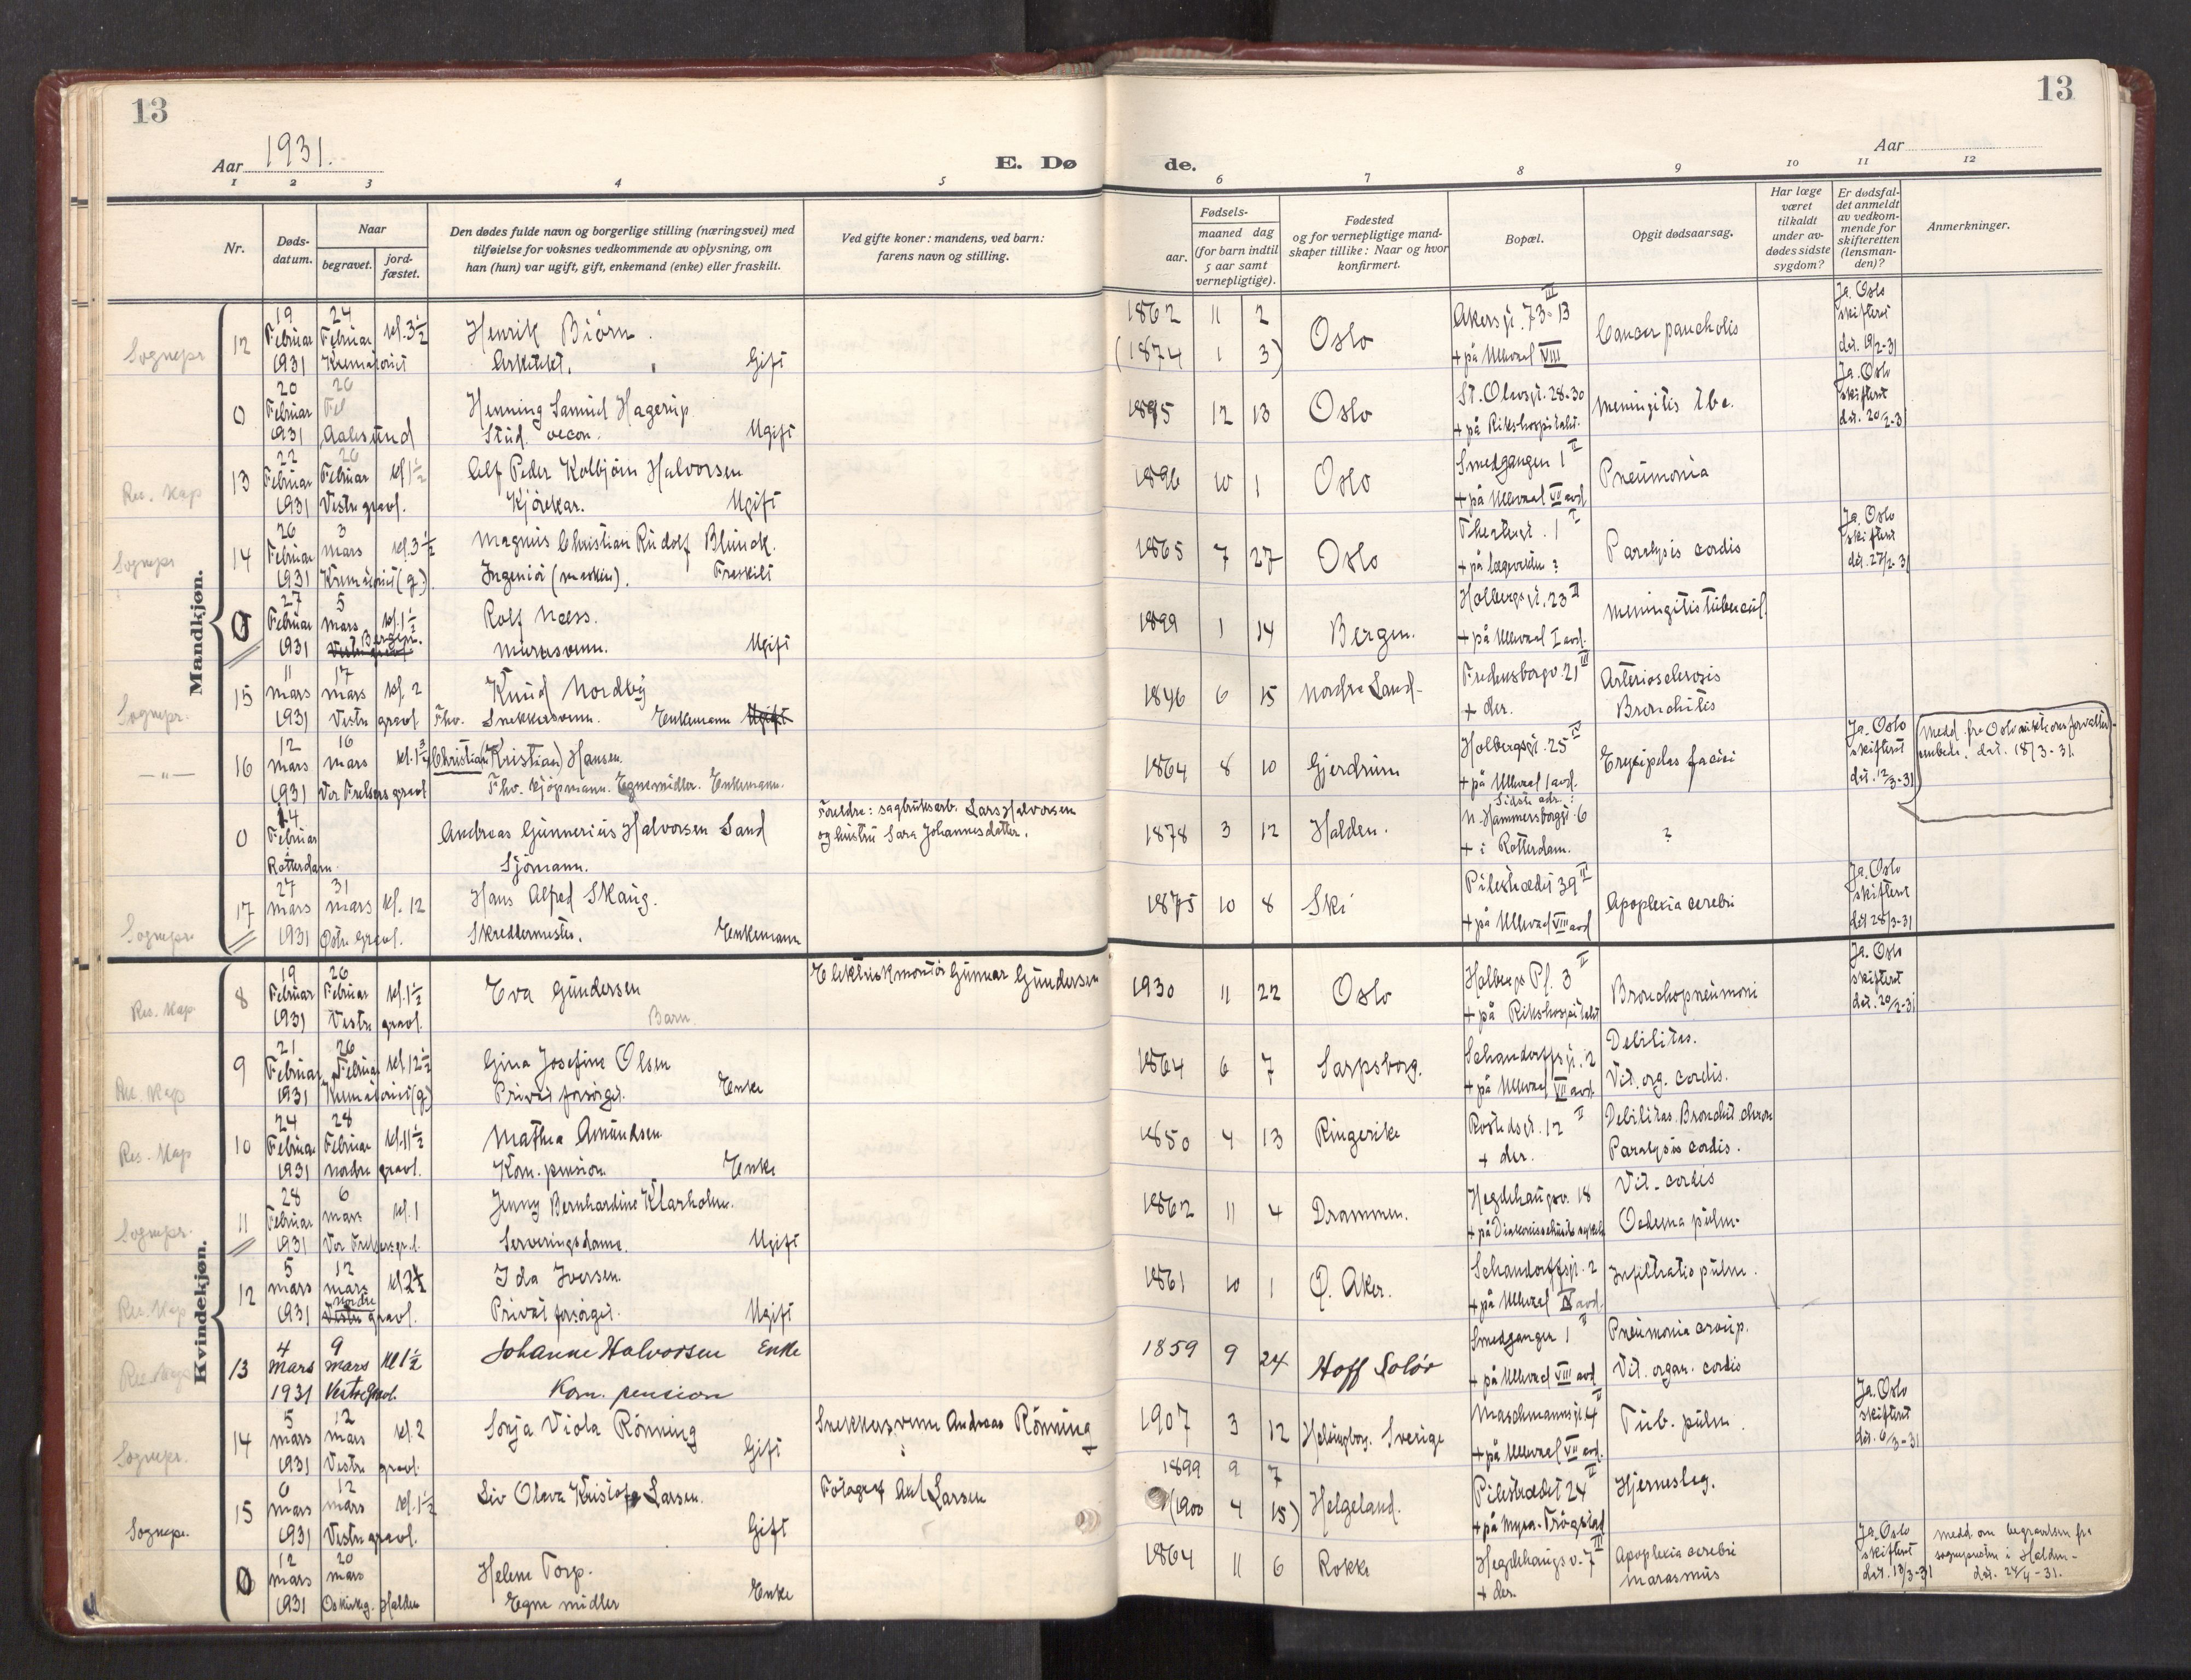 13
13
Aar 1931.
E. Dø
de.
Aar
1 2 3 4 5
6 7 8 9 10 11 12
Nr.
Døds-
datum.
Naar
begravet.
jord-
fæstet.
Den dødes fulde navn og borgerlige stilling (næringsvei) med
tilføielse for voksnes vedkommende av oplysning, om
han (hun) var ugift, gift, enkemand (enke) eller fraskilt.
Ved gifte koner: mandens, ved barn:
farens navn og stilling.
Fødsels-
aar.
maaned dag
(for barn indtil
5 aar samt
vernepligtige).
Fødested
og for vernepligtige mand-
skaper tillike: Naar og hvor
konfirmert.
Bopæl.
Opgit dødsaarsag.
Har læge
været
tilkaldt
under av-
dødes sidste
sygdom?
Er dødsfal-
det anmeldt
av vedkom-
mende for
skifteretten
(lensman-
den)?
Anmerkninger.
Mandkjøn.
Sognepr
12
19 Februar 1931
24 Februar kl. 3 1/2
Krematoriet
Henrik Biörn.
Arkitekt. Gift
1862 11 2
(1874 1 3)
Oslo
Akersgt. 73 III - 13
+ på Ullevaal VIII
Cancer
Ja. Oslo
skifteret
det. 19/2-31
0
20 Februar 1931
20
Aalesund
Henning Samuel Hagerup
Stud. oecon. Ugift
12 13
Oslo
St. Olavsgt. 28-30
+ på Rikshospitalet.
Meningitis tbc.
Ja. Oslo
skifteret
det. 20/2-3
Res. Kap
13
22 Februar 1931
26 Februar kl 1 1/2
Vestre gravl.
Alf Peder Kolbjörn Halvorsen
Kjörekar. Ugift
1896 10 1
Oslo
Smedgangen 1 II
+ på Ullevaal VII avd
Pneumonia
Sognepr
14
26 Februar 1931
3 mars kl. 3 1/2
Krematoriet (g.)
Magnus Christian Rudolf Blunck.
Ingeniör (maskin). Fraskilt
1865 7 27
Oslo
1 I
+ på
Paralysis cordis
Ja. Oslo
skifteret
det. 27/2-31
0
27 Februar 1931
5 mars kl. 1 1/2
Bergen.
Vestre gravl.
Rolf Næss.
Murersvenn. Ugift
1899 1 14
Bergen.
Holbergsgt. 23 II
+ på Ullevaal I avd.
Meningitis tubercul.
Sognepr.
15
11 mars 1931
17 mars kl. 2
Vestre gravl.
Knud Nordby
Fhv. Snekkersvenn. Enkemann Ugift
1846 6 15
Nordre Land
Fredensborgv. 21 III
+ der.
Arteriosclerosis
Bronchitis
— " —
16
12 mars 1931
16 mars kl. 1 3/4
Vor Frelsers gravl
Christian (Kristian) Hansen.
Fhv. Kjöpmann. Egne midler. Enkemann.
1864 8 10
Gjerdrum
Holbergsgt. 25 IV
+ på Ullevaal 1 avd.
Erysipelas faciei
Ja. Oslo
skifteret
det. 12/3-31
Medd. fra Oslo
det. 18/3-31.
0
14 Februar
i Rotterdam
Andreas Gunnerius Halvorsen Sand
Sjömann.
Foreldre: sagbruksarb. Lars Halvorsen
og hustru Sara Johannesdatter.
1878 3 12
Halden.
Sidste adr.:
N. Hammersborggt. 6
+ i Rotterdam.
?
Sognepr
17
27 mars 1931
31 mars kl. 12
Östre Gravl.
Hans Alfred Skaug.
Skreddermester. Enkemann
1875 10 8
Ski
Pilestrædet 39 II
+ på Ullevaal VIII avd
Apoplexia cerebri
Ja. Oslo
skifteret
det 28/3-31
Kvindekjøn.
Res. Kap
8
19 Februar 1931
26 Februar kl. 1 1/2
Vestre gravl.
Eva Gundersen
Barn.
Elektriskmontör Gunnar Gundersen
1930 11 22
Oslo
Holbergs Pl. 3 II
+ på Rikshospitalet
Bronchopneumoni
Ja. Oslo
skifteret
det. 20/2-31
Res. Kap
9
21 Februar 1931
26 Februar kl 12 1/2
Krematoriet (g)
Gina Josefine Olsen
Privat forsörget. Enke
1864 6 7
Sarpsborg.
Schandorffsgt. 2
+ på Ullevaal VII avd.
Debilitas.
Vit. org. cordis.
Res. Kap
10
24 Februar 1931
28 Februar kl. 11 1/2
Nordre gravl.
Mathea Amundsen
Kom. pension Enke
1850 4 13
Ringerike
Rostedsgt. 12 II
+ der.
Debilitas. Bronchit. chron
Paralysis cordis.
Sognepr.
11
28 Februar 1931
6 mars kl. 1
Vor Frelsers gr.l.
Jenny Bernhardine Klarholm.
Serveringsdame. Ugift
1862 11 4
Drammen.
Hegdehaugsv. 18
+ på
Vit. cordis
Oedema pulm.
Res. Kap
12
5 mars 1931
12 mars
Nordre
Vestre gravl.
Ida Iversen.
Privat forsörget. Ugift
1861 10 1
Ö. Aker.
Schandorffsgt. 2
+ på Ullevaal IX avd.
Infiltratio pulm.
Res. Kap
13
4 mars 1931
9 mars kl 1 1/2
Vestre Gravl.
Johanne Halvorsen Enke
Kom. pension
1859 9 24
Hoff Solör
Smedgangen 1 II
+ på Ullevaal VIII avd
Pneumonia croup.
Vit. organ. cordis
Sognepr.
14
5 mars 1931
12 mars kl. 2
Vestre gravl.
Sonja Viola Rönning
Gift
Snekkersvenn Andreas Rönning
1907 3 12
Helsingborg. Sverige
Maschmannsgt. 4 II
+ på Ullevaal VII avd.
Tub. pulm.
Ja. Oslo
skifteret
det. 6/3-31
Sognepr.
15
6 mars 1931
12 mars kl. 1 1/2
Vestre gravl.
Liv Olava Larsen.
Gift
Fotograf Larsen
1899 9 7
(1900 4 15)
Helgeland.
Pilestrædet 24 II
+ på Mysen-Trögstad
Hjerneslag.
0
12 mars 1931
20 mars
Os kirkeg. Halden
Helene Torp.
Egne midler Enke
1864 11 6
Rokke
Hegdehaugsv. 7 III
+ der.
Apoplexia cerebri
Marasmus
Ja. Oslo
skifteret
det. 13/3-31
Medd. om begravelsen fra
sogneprsten i Halden-
det. 24/4-31.